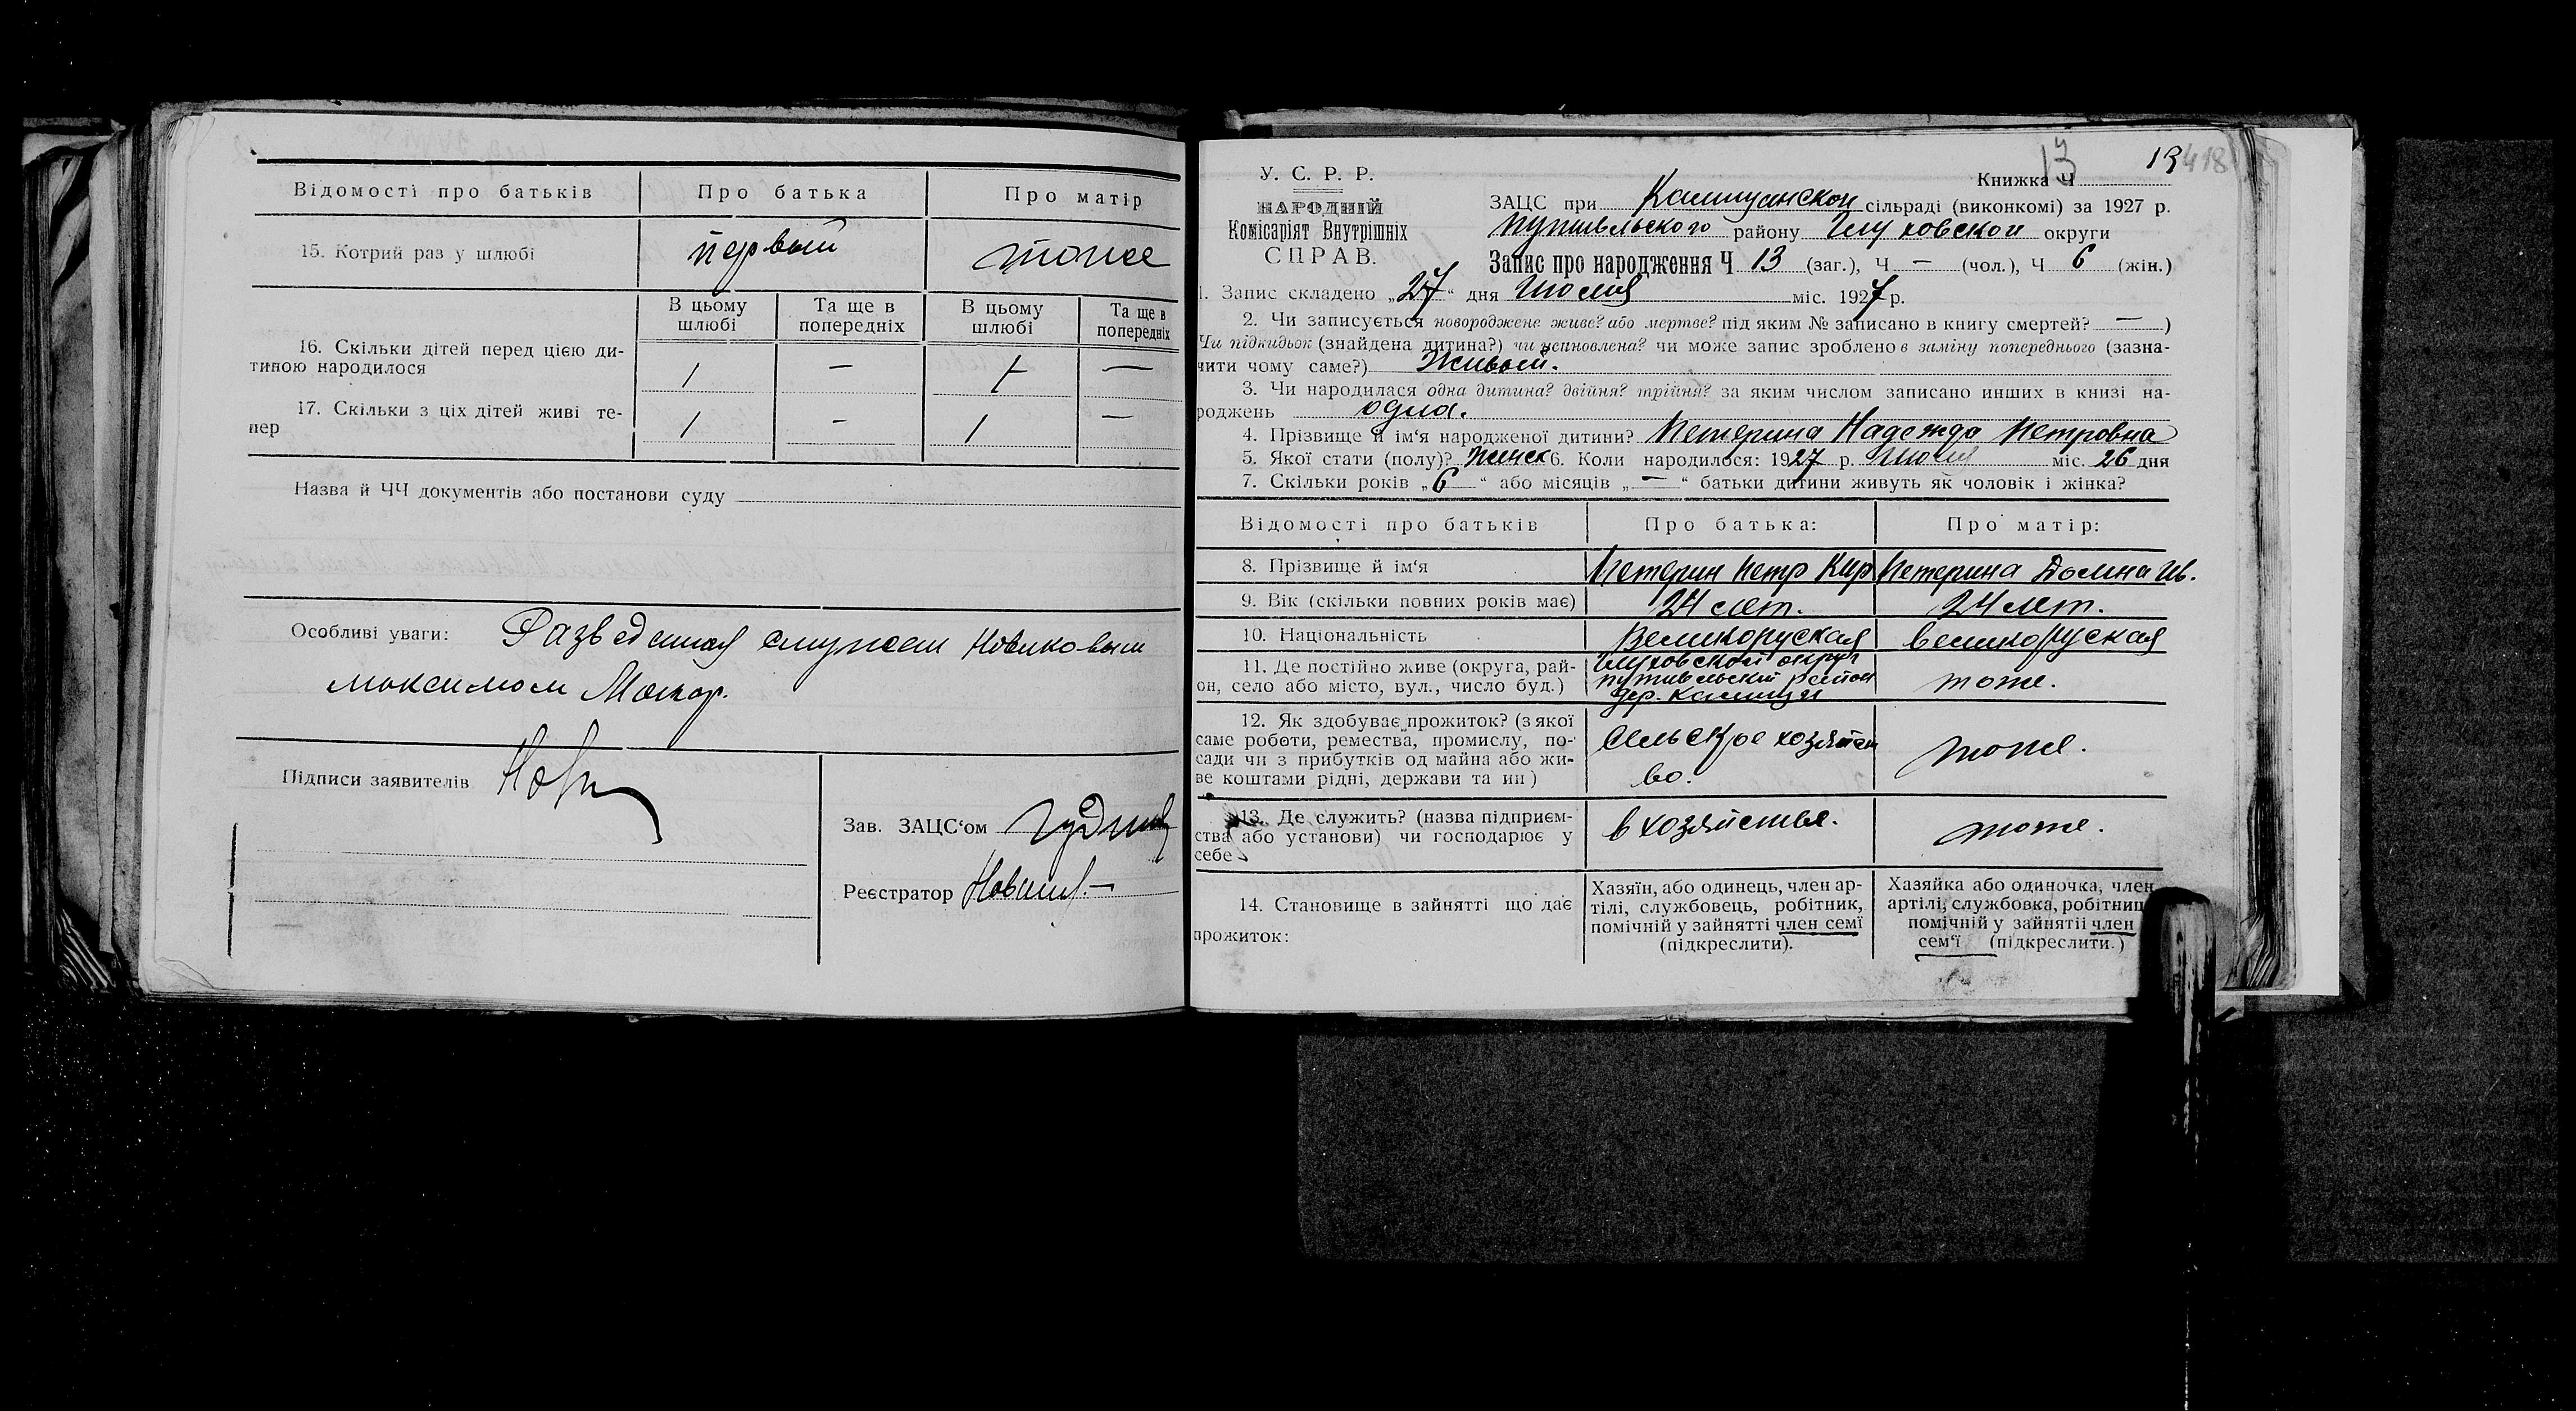 Відомості про батьків Про батька Про матір
15. Котрий раз у шлюбі первый тоже
В цьому шлюбі Та ще в попередніх В цьому шлюбі Та ще в попередніх
16. Скільки дітей перед цією ди-
тиною народилося 1 — 1 —
17. Скільки з ціх дітей живі те-
пер 1 — 1 —
Назва й ЧЧ документів або постанови суду
Особливі уваги: Разведенная смужем Новиковым
максимом Макар.
Підписи заявителів
Зав. ЗАЦС‘ом
Реєстратор
13
13 418
У. С. Р. Р.
НАРОДНІЙ
Комісаріят Внутрішніх
СПРАВ.
Книжка Ч
ЗАЦС при сільраді (виконкомі) за 1927 р.
путивльского району Глуховской округи
Запис про народження Ч 13 (заг.), Ч — (чол.), Ч 6 (жін.)
1. Запис складено „27“ дня Июля міс. 1927 р.
2. Чи записується новороджене живе? або мертве? під яким № записано в книгу смертей? — )
Чи підкидьок (знайдена дитина?) чи усиновлена? чи може запис зроблено в заміну попереднього (зазна-
чити чому саме?) Живой.
3. Чи народилася одна дитина? двійня? трійня? за яким числом записано инших в книзі на-
роджень одна.
4. Прізвище й ім‘я народженої дитини? Петерина Надежда Петровна
5. Якої стати (полу)? Женск 6. Коли народилося: 1927 р. Июля міс. 26 дня
7. Скільки років „6“ або місяців „—“ батьки дитини живуть як чоловік і жінка?
Відомості про батьків Про батька: Про матір:
8. Прізвище й ім‘я Петерин Петр Кир Петерина Домна Ив.
9. Вік (скільки повних років має) 24 лет. 24 лет.
10. Національність Великоруская великоруская
11. Де постійно живе (округа, рай-
он, село або місто, вул., число буд.) Глуховской округ
путивльский район
дер. тоже.
12. Як здобуває прожиток? (з якої
саме роботи, ремества, промислу, по-
сади чи з прибутків од майна або жи-
ве коштами рідні, держави та ин) Сельское хозяйст
во. тоже.
13. Де служить? (назва підприєм-
ства або установи) чи господарює у
себе в хозяйстве. тоже.
14. Становище в зайнятті що дає
прожиток:
Хазяїн, або одинець, член ар-
тілі, службовець, робітник,
помічній у зайнятті член семї
(підкреслити).
Хазяйка або одиночка, член
артілі, службовка, робітниц
помічній у зайнятіі член
сем‘ї (підкреслити.)